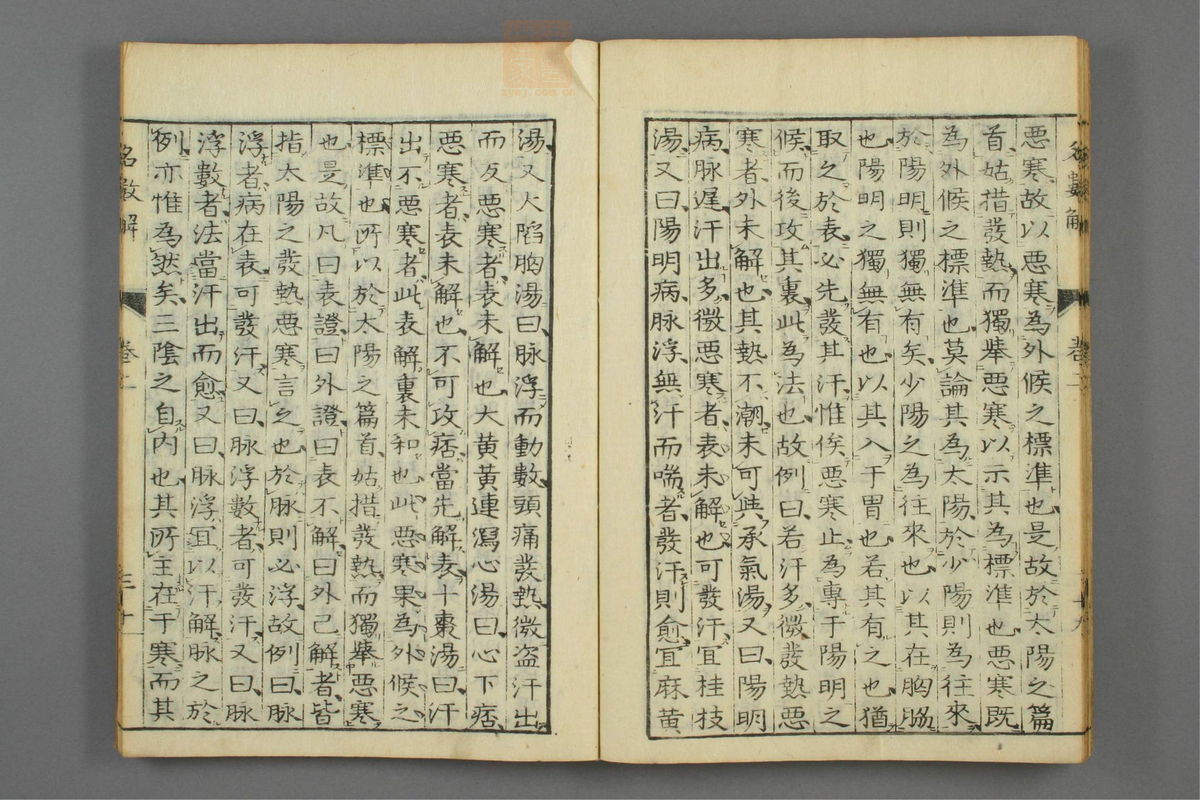 惡寒故以惡寒為外候之標準也是故於太陽之篇
首姑措發熱而獨舉惡寒以示其為標準也惡寒既
為外候之標準也莫論其為太陽於少陽則為往來
於陽明則獨無有矣少陽之為往來也以其在胸脇
也陽明之獨無有也以其入于胃也若其有之也猶
取之於表必先發其汗惟俟惡寒止為專于陽明之
候而後攻其裏此為法也故例曰若汗多微發熱惡
寒者外未解也其熱不潮未可與承氣湯又曰陽明
病脉遲汗出多微惡寒者表未解也可發汗宜桂枝
湯又曰陽明病脉浮無汗而喘者發汗則愈宜麻黃
湯又大陷胸湯曰脉浮而動數頭痛發熱微盗汗出
而反惡寒者表未解也大黃黃連瀉心湯曰心下痞
惡寒者表未解也不可攻痞當先解表十棗湯曰汗
出不惡寒者此表解裏未和也此惡寒果為外候之
標準也所以於太陽之篇首姑措發熱而獨舉惡寒
也是故凡曰表證曰外證曰表不解曰外已解者皆
指太陽之發熱惡寒言之也於脉則必浮故例曰脉
浮者病在表可發汗又曰脉浮數者可發汗又曰脉
浮數者法當汗出而愈又曰脉浮宜以汗解脉之於
例亦惟為然矣三陰之自內也其所主在于寒而其
名數解